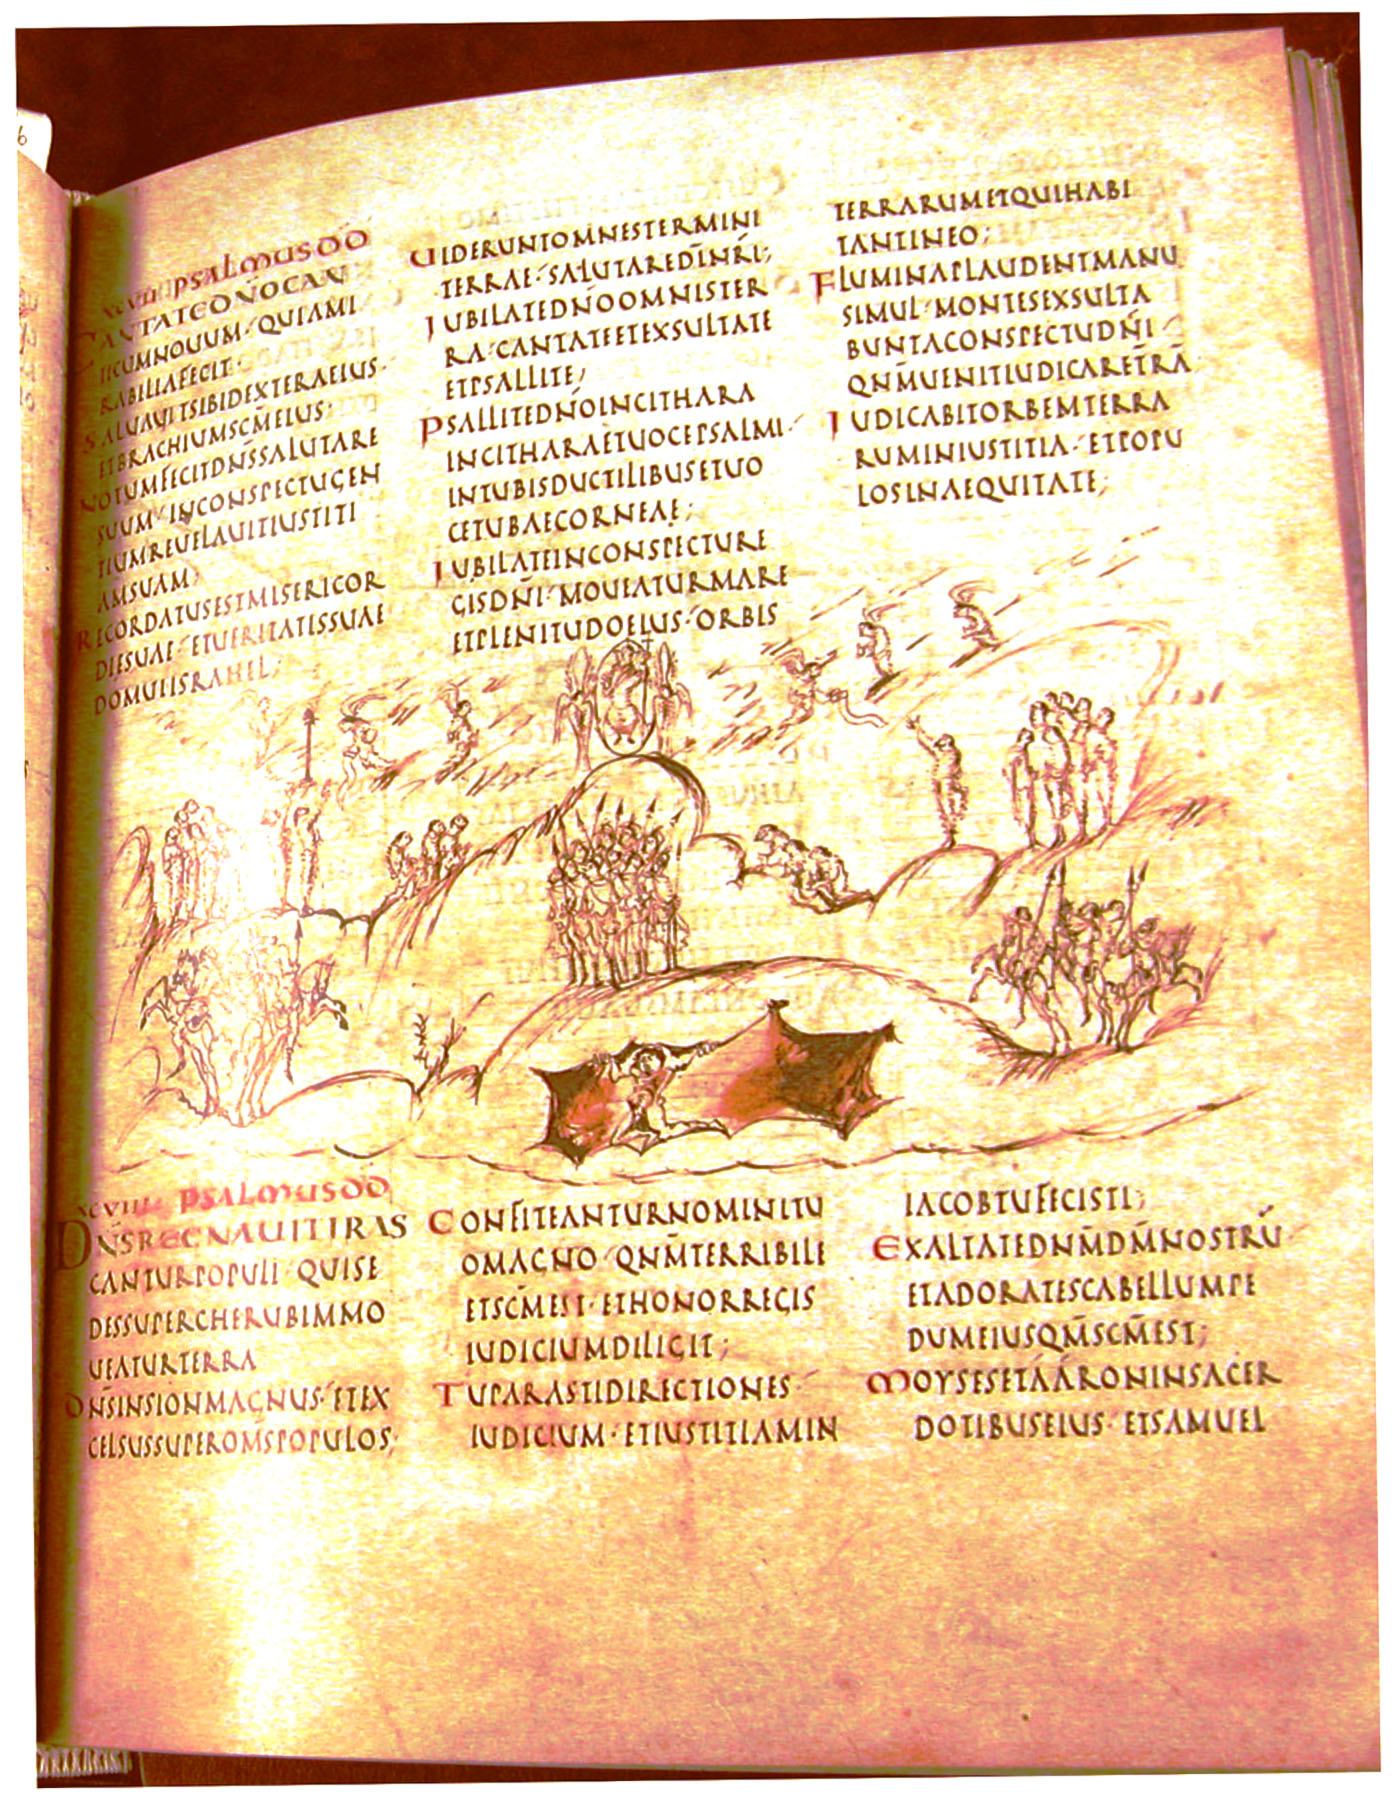 6
XCVII PSALMUS DD
CANTATEDN̄OCAN
TICUMNOUUM·QUIAMI
RABILIAFECIT·
SALUAUITSIBIDEXTERAEIUS·
ETBRACHIUMSCM̄EIUS·
NOTUMFECITDN̄SSALUTARE
SUUM·INCONSPECTUGEN
TIUMREUELAUITIUSTITI
AMSUAM;
RECORDATUSESTMISERICOR
DIESUAE·ETUERITATISSUAE
DOMUIISRAHEL;
UIDERUNTOMNESTERMINI
TERRAE·SALUTAREDĪNR̄I;
IUBILATEDN̄OOMNISTER
RA·CANTATEETEXSULTATE
ETPSALLITE;
PSALLITEDN̄OINCITHARA
INCITHARAETUOCEPSALMI·
INTUBISDUCTILIBUSETUO
CETUBAECORNEAE;
IUBILATEINCONSPECTURE
GISDN̄I·MOUEATURMARE
ETPLENITUDOEIUS·ORBIS
TERRARUMETQUIHABI
TANTINEO;
FLUMINAPLAUDENTMANU
SIMUL·MONTESEXSULTA
BUNTACONSPECTUDN̄I
QNM̄UENITIUDICARET̄RĀ
IUDICABITORBEMTERRA
RUMINIUSTITIA·ETPOPU
LOSINAEQUITATE;
XCVIII PSALMUS DD
DN̄SREGNAUITIRAS
CANTURPOPULI·QUISE
DESSUPERCHERUBIMMO
UEATURTERRA
DN̄SINSIONMAGNUS·ETEX
CELSUSSUPEROMS̄POPULOS;
CONFITEANTURNOMINITU
OMAGNO·QNM̄TERRIBILE
ETSCM̄EST·ETHONORREGIS
IUDICIUMDILIGIT;
TUPARASTIDIRECTIONES·
IUDICIUM·ETIUSTITIAMIN
IACOBTUFECISTI;
EXALTATEDNM̄DM̄NOSTRŪ
ETADORATESCABELLUMPE
DUMEIUSQM̄SCM̄EST;
MOYSESETAARONINSACER
DOTIBUSEIUS·ETSAMUEL